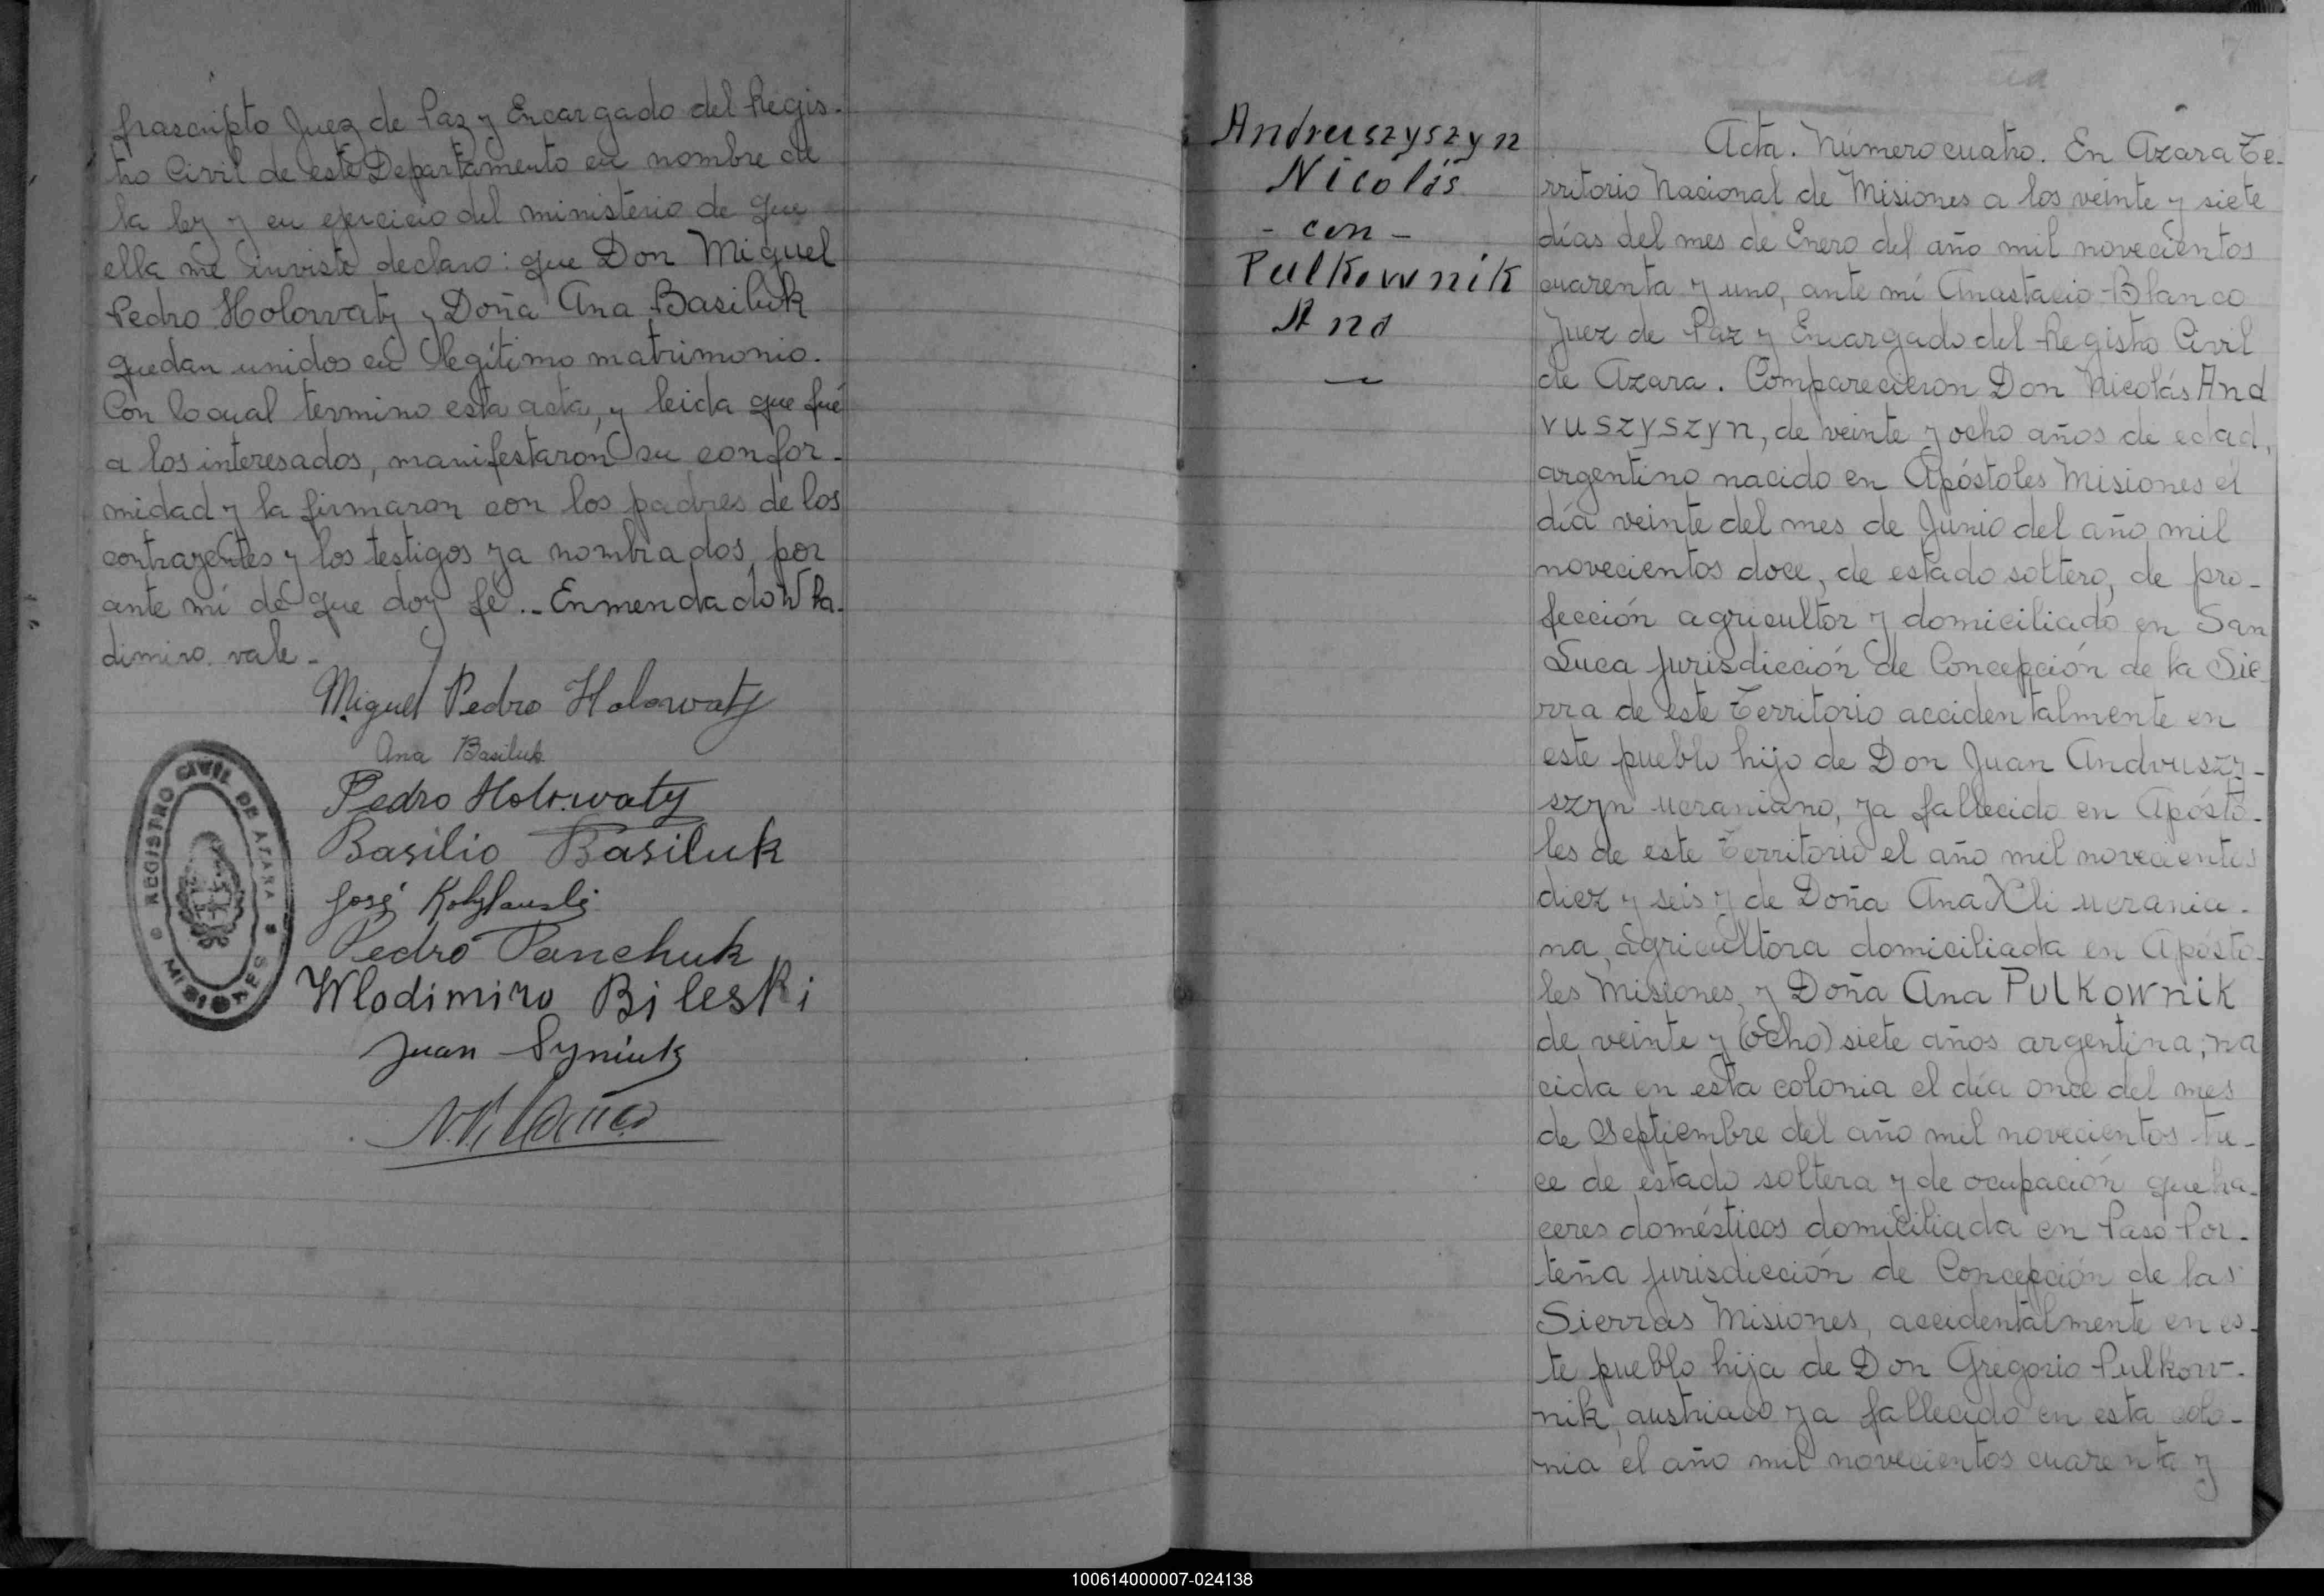 frascripto Juez de Paz y Encargado del Regis-
tro Civil de este Departamento en nombre de
la ley y en ejercicio del ministerio de que
ella me inviste declaro: que Don Miguel
Pedro Holowaty y Doña Ana Basiluk
quedan unidos en legítimo matrimonio.
Con lo cual termino esta acta, y leida que fué
a los interesados, manifestaron su confor-
midad y la firmaron con los padres de los
contrayentes y los testigos ya nombrados, por
ante mí de que doy fé.- Enmendado: Wla-
dimiro. vale-
Miguel Pedro Holowaty
Ana Basiluk
Pedro Holowaty
Basilio Basiluk
José
Pedro Panchuk
Wlodimiro Bileski
Juan Syniuk
REGISTRO CIVIL DE AZARA
MISIONES
Andruszyszyn
Nicolás
- con -
Pulkownik
Ana
Acta. Número cuatro. En Azara Te-
rritorio Nacional de Misiones a los veinte y siete
días del mes de Enero del año mil novecientos
cuarenta y uno, ante mí Anastacio Blanco
Juez de Paz y Encargado del Registro Civil
de Azara. Comparecieron Don Nicolás And
ruszyszyn, de veinte y ocho años de edad,
argentino nacido en Apóstoles Misiones el
día veinte del mes de Junio del año mil
novecientos doce, de estado soltero, de pro-
fección agricultor y domiciliado en San
Luca jurisdicción de Concepción de la Sie
rra de este Territorio accidentalmente en
este pueblo hijo de Don Juan Andruszy-
szyn ucraniano, ya fallecido en Apósto-
les de este Territorio el año mil novecientos
diez y seis y de Doña Ana ucrania-
na, agricultora domiciliada en Aposto-
les Misiones, y Doña Ana Pulkownik
de veinte y (ocho) siete años argentina, na
cida en esta colonia el día once del mes
de Septiembre del año mil novecientos tre-
ce de estado soltera y de ocupación queha-
ceres domésticos domiciliada en Paso Por-
teña jurisdicción de Concepción de las
Sierras Misiones, accidentalmente en es-
te pueblo hija de Don Gregorio Pulkow-
nik, austriaco ya fallecido en esta colo-
nia el año mil novecientos cuarenta y
100614000007-024138